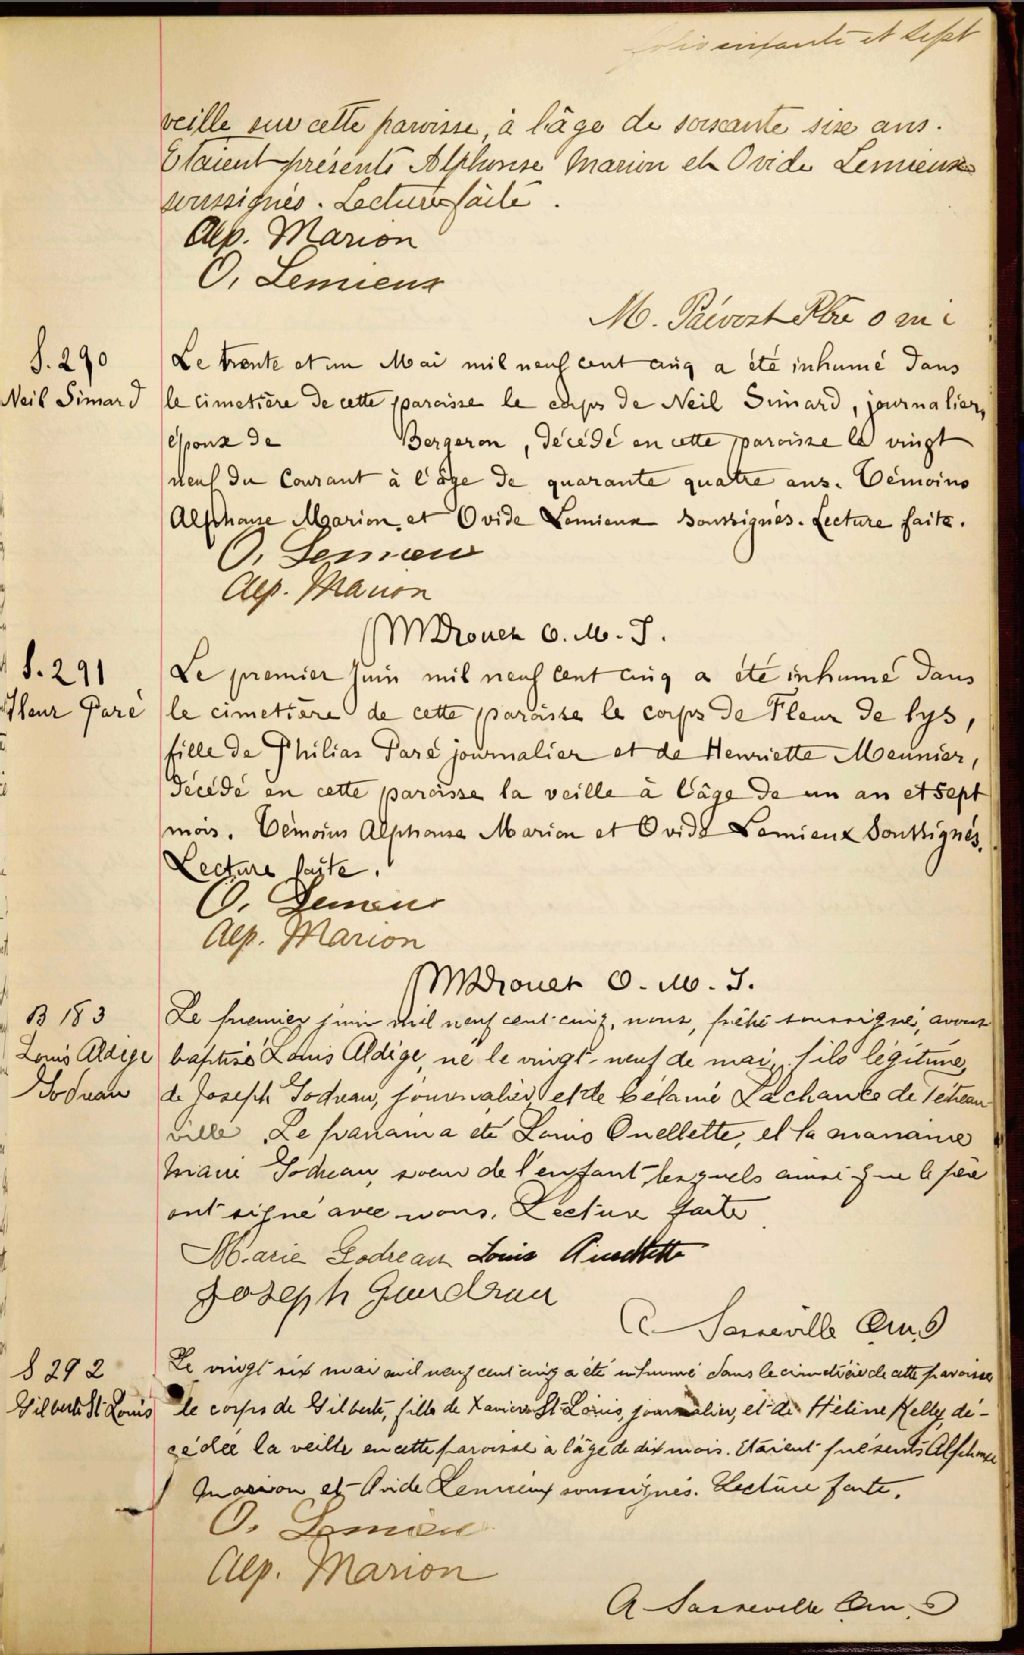 folio soixante et sept
veille sur cette paroisse, à l'âge de soixante six ans.
Etaient présents Alphonse Marion et Ovide Lemieux
soussignés. Lecture faite.
Alp. Marion
O. Lemieux
M. Prévost Ptre o m i
S. 290
Neil Simard
Le trente et un Mai mil neuf cent cinq a été inhumé dans
le cimetière de cette paroisse le corps de Neil Simard, journalier,
époux de Bergeron, décédé en cette paroisse le vingt
neuf du Courant à l'âge de quarante quatre ans. Témoins
Alphonse Marion et Ovide Lemieux soussignés. Lecture faite.
O. Lemieux
Alp. Marion
Drouet O. M. I.
S. 291
Fleur Paré
Le premier Juin mil neuf cent cinq a été inhumé dans
le cimetière de cette paroisse le corps de Fleur de lys,
fille de Philias Paré journalier et de Henriette Meunier,
décédé en cette paroisse la veille à l'âge de un an et sept
mois. Témoins Alphonse Marion et Ovide Lemieux Soussignés.
Lecture faite.
O. Lemieux
Alp. Marion
Drouet O. M. I.
B 183
Louis Aldige
Godreau
Le premier juin mil neuf cent cinq, nous, prêtre soussigné, avons
baptisé Louis Aldige, né le vingt-neuf de mai, fils légitime,
de Joseph Godreau, journalier, et de Célanie Lachance de Tétreau-
ville. Le parrain a été Louis Ouellette, et la marraine
Marie Godreau, soeur de l'enfant lesquels ainsi que le père
ont signé avec nous. Lecture faite
Marie Godreau Louis Ouellette
Joseph Gaudreau
A Lasseville O.m.I
S 292
Gilberte St-Louis
Le vingt six mai mil neuf cent cinq a été inhumé dans le cimetière de cette paroisse
le corps de Gilberte, fille de Xavier St-Louis, journalier, et de Hélène Kelly, dé-
cédée la veille en cette paroisse à l'âge de dix mois. Etaient présents Alphonse
Marion et Ovide Lemieux soussignés. Lecture faite.
O. Lemieux
Alp. Marion
A Lasseville O.m.I